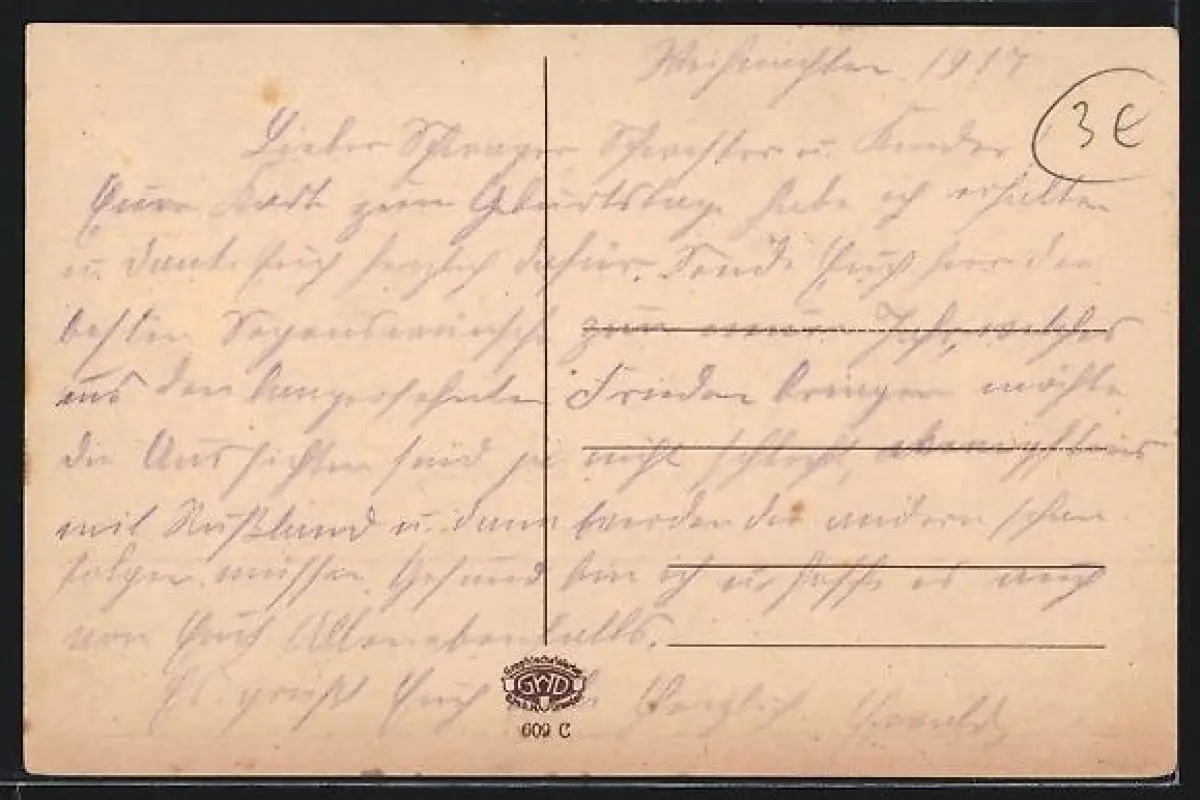 Weihnachten 1917
3 €
Lieber Schwager Schwester u. Kinder
Eure Karte zum Geburtstage habe ich erhalten
u. danke Euch herzlich dafür. Sende Euch hier die
besten Segenswünsche zum neuen Jahr, welches
uns den langersehnten Frieden bringen möchte
die Aussichten sind ja nicht schlecht, wenigstens
mit Rußland u. dann werden die andern schon
folgen müssen. Gesund bin ich u. hoffe es auch
von Euch Allen ebenfalls.
Es grüßt Euch Alle Herzlich
GWD
609 C